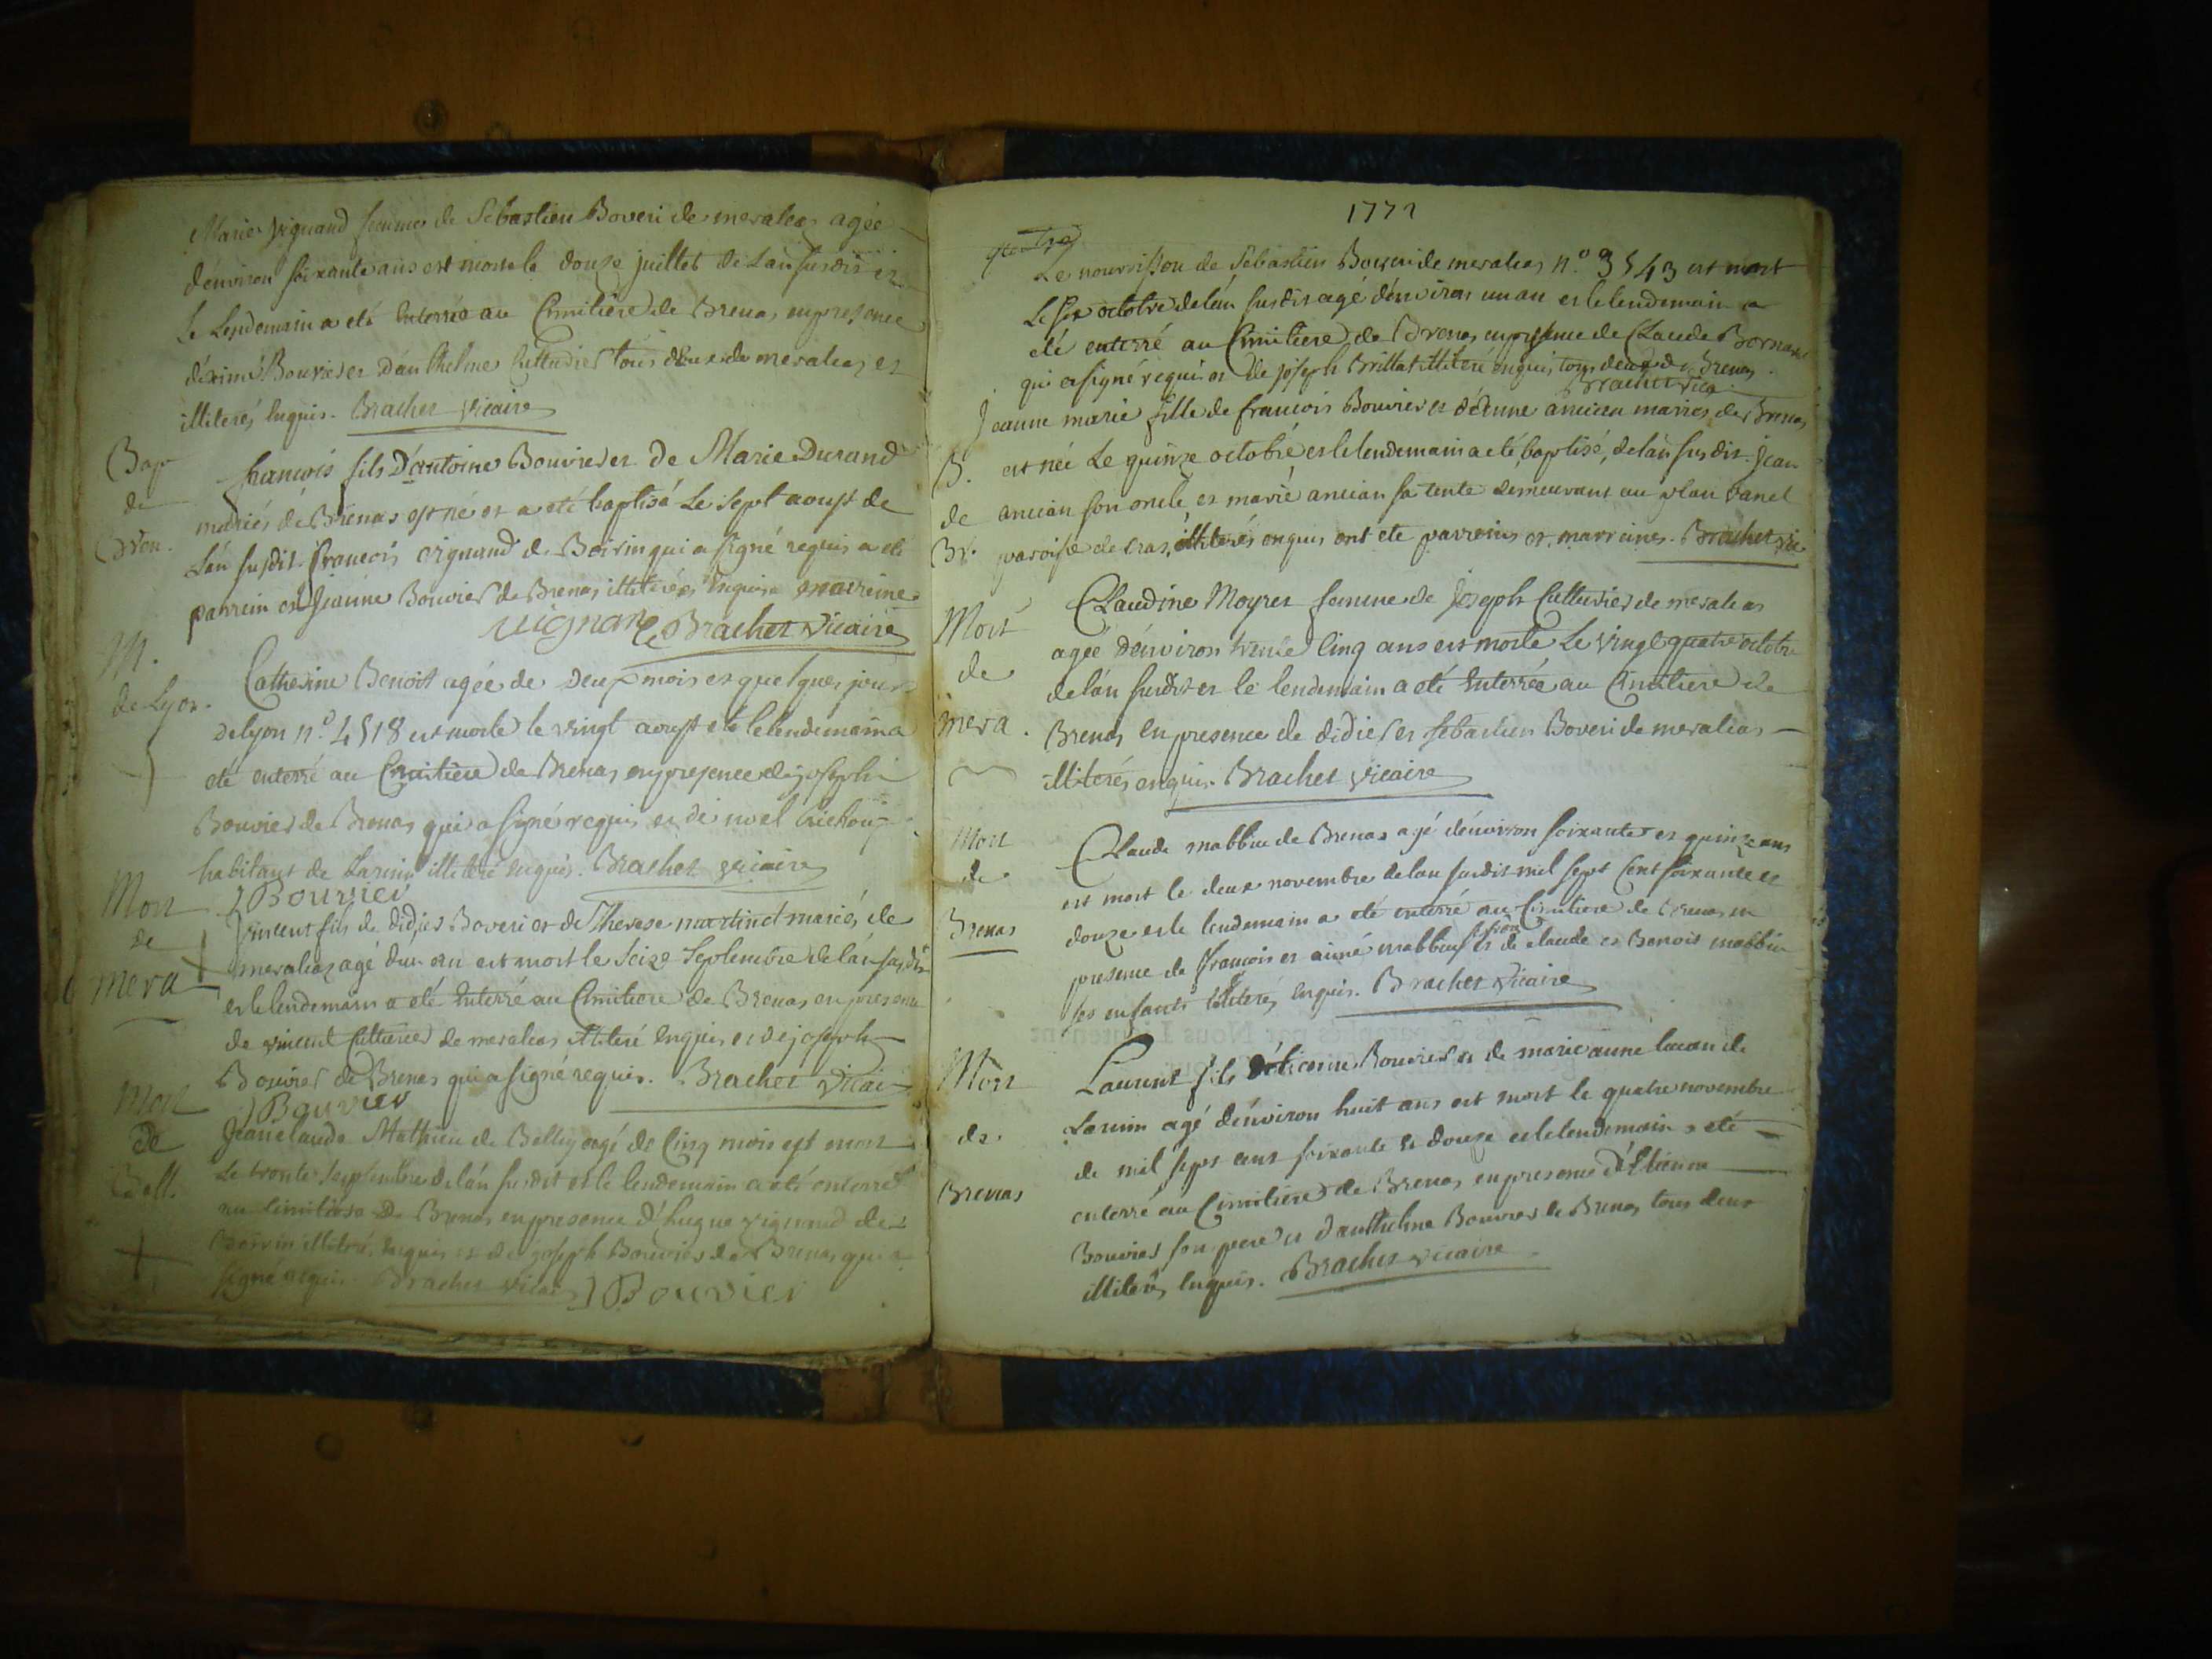 Marie Vignand femme de Sébastien Boveri de meraleas agée
d'environ soixante ans est morte le douze juillet de L'an susdit et
le Lendemain a eté Enterrée au Cimitière de Brenas en presence
d'aimé Bouvier et d'anthelme Cuttivier tous deux de meraleas et
illiterés Enquis. Brachet Vicaire
Bap
de
Bren.
francois fils D'antoine Bouvier et de Marie Durand
mariés de Brenas est né et a eté baptisé Le Sept aoust de
L'an susdit. francois vignand de Boirin qui a signé requis a eté
parrein et Jeanne Bouvier de Brenas illiterée Enquise marreine
Uignand Brachet Vicaire
M.
de Lyon.
Catherine Benoit agée de Deux mois et quelques jours
de lyon n.° 4518 est morte le vingt aoust et le lendemain a
eté enterré au Cimitière de Brenas en presence de joseph
Bouvier de Brenas qui a signé requis et de noel
habitant de Larnin illiteré enquis. Brachet vicaire
J Bouvier
Mort
de
mera
Vincent fils de didier Boveri et de Therese martinet mariés de
meraleas agé d'un an est mort le Seize Septembre de l'an susdit
et le lendemain a eté Enterré au Cimitiere de Brenas en presence
de vincent Cuttivier de meraleas illiteré Enquis et de joseph
Bouvier de Brenas qui a signé requis. Brachet Vicai
J Bouvier
Mort
de
Bell.
Jean claude Mathieu de Belley agé de Cinq mois est mort
Le trente Septembre de l'an susdit et le lendemain a eté enterré
au Cimitière De Brenas en presence d'hugue vignand de
Boirin illiteré, Enquis et de joseph Bouvier de Brenas qui a
signé requis. Brachet vicaire J Bouvier
1772
Le nourrisson de Sébastien Boveri de meraleas n.° 3543 est mort
Le six octobre de l'an susdit agé d'environ un an et le lendemain a
eté enterré au Cimitiere de Brenas en presence de Claude Bornard
qui a signé requis et de joseph Brillat illiteré enquis, tous deux de Brenas.
Brachet vica
B.
de
Br.
Jeanne marie fille de francois Bouvier et d'etienne ancian mariés de Brenas
est née Le quinze octobre et le lendemain a eté baptisé, de l'an susdit. Jean
ancian son oncle et marie ancian sa tente demeurant au plan vanel
paroise de cras, illiterés enquis ont eté parreins et marreines. Brachet vic
Mort
de
mera.
Claudine Moyret femme de Joseph Cuttivier de meraleas
agée d'environ trente Cinq ans est morte Le vingt quatre octobre
de l'an susdit et le lendemain a eté Enterrée au Cimitiere de
Brenas En presence de didier et sébastien Boveri de meraleas
illiterés enquis. Brachet vicaire
Mort
de
Brenas
Claude mabbiu de Brenas agé d'environ soixante et quinze ans
est mort le deux novembre de l'an susdit mil sept Cent soixante et
douze et le lendemain a eté enterré au Cimitiere de Brenas en
presence de francois et aimé mabbiu et de claude et Benoit mabbiu
ses enfants illiterés, Enquis. Brachet Vicaire
Mort
de.
Brenas
Laurent fils d'etienne Bouvier et de marie aimé de
Larnin agé d'environ huit ans est mort le quatre novembre
de mil sept cent soixante et douze et le lendemain a eté
enterré au Cimitière de Brenas en presence d'Etienne
Bouvier son pere et d'anthelme Bouvier de Brenas tous deux
illiterés, Enquis. Brachet vicaire